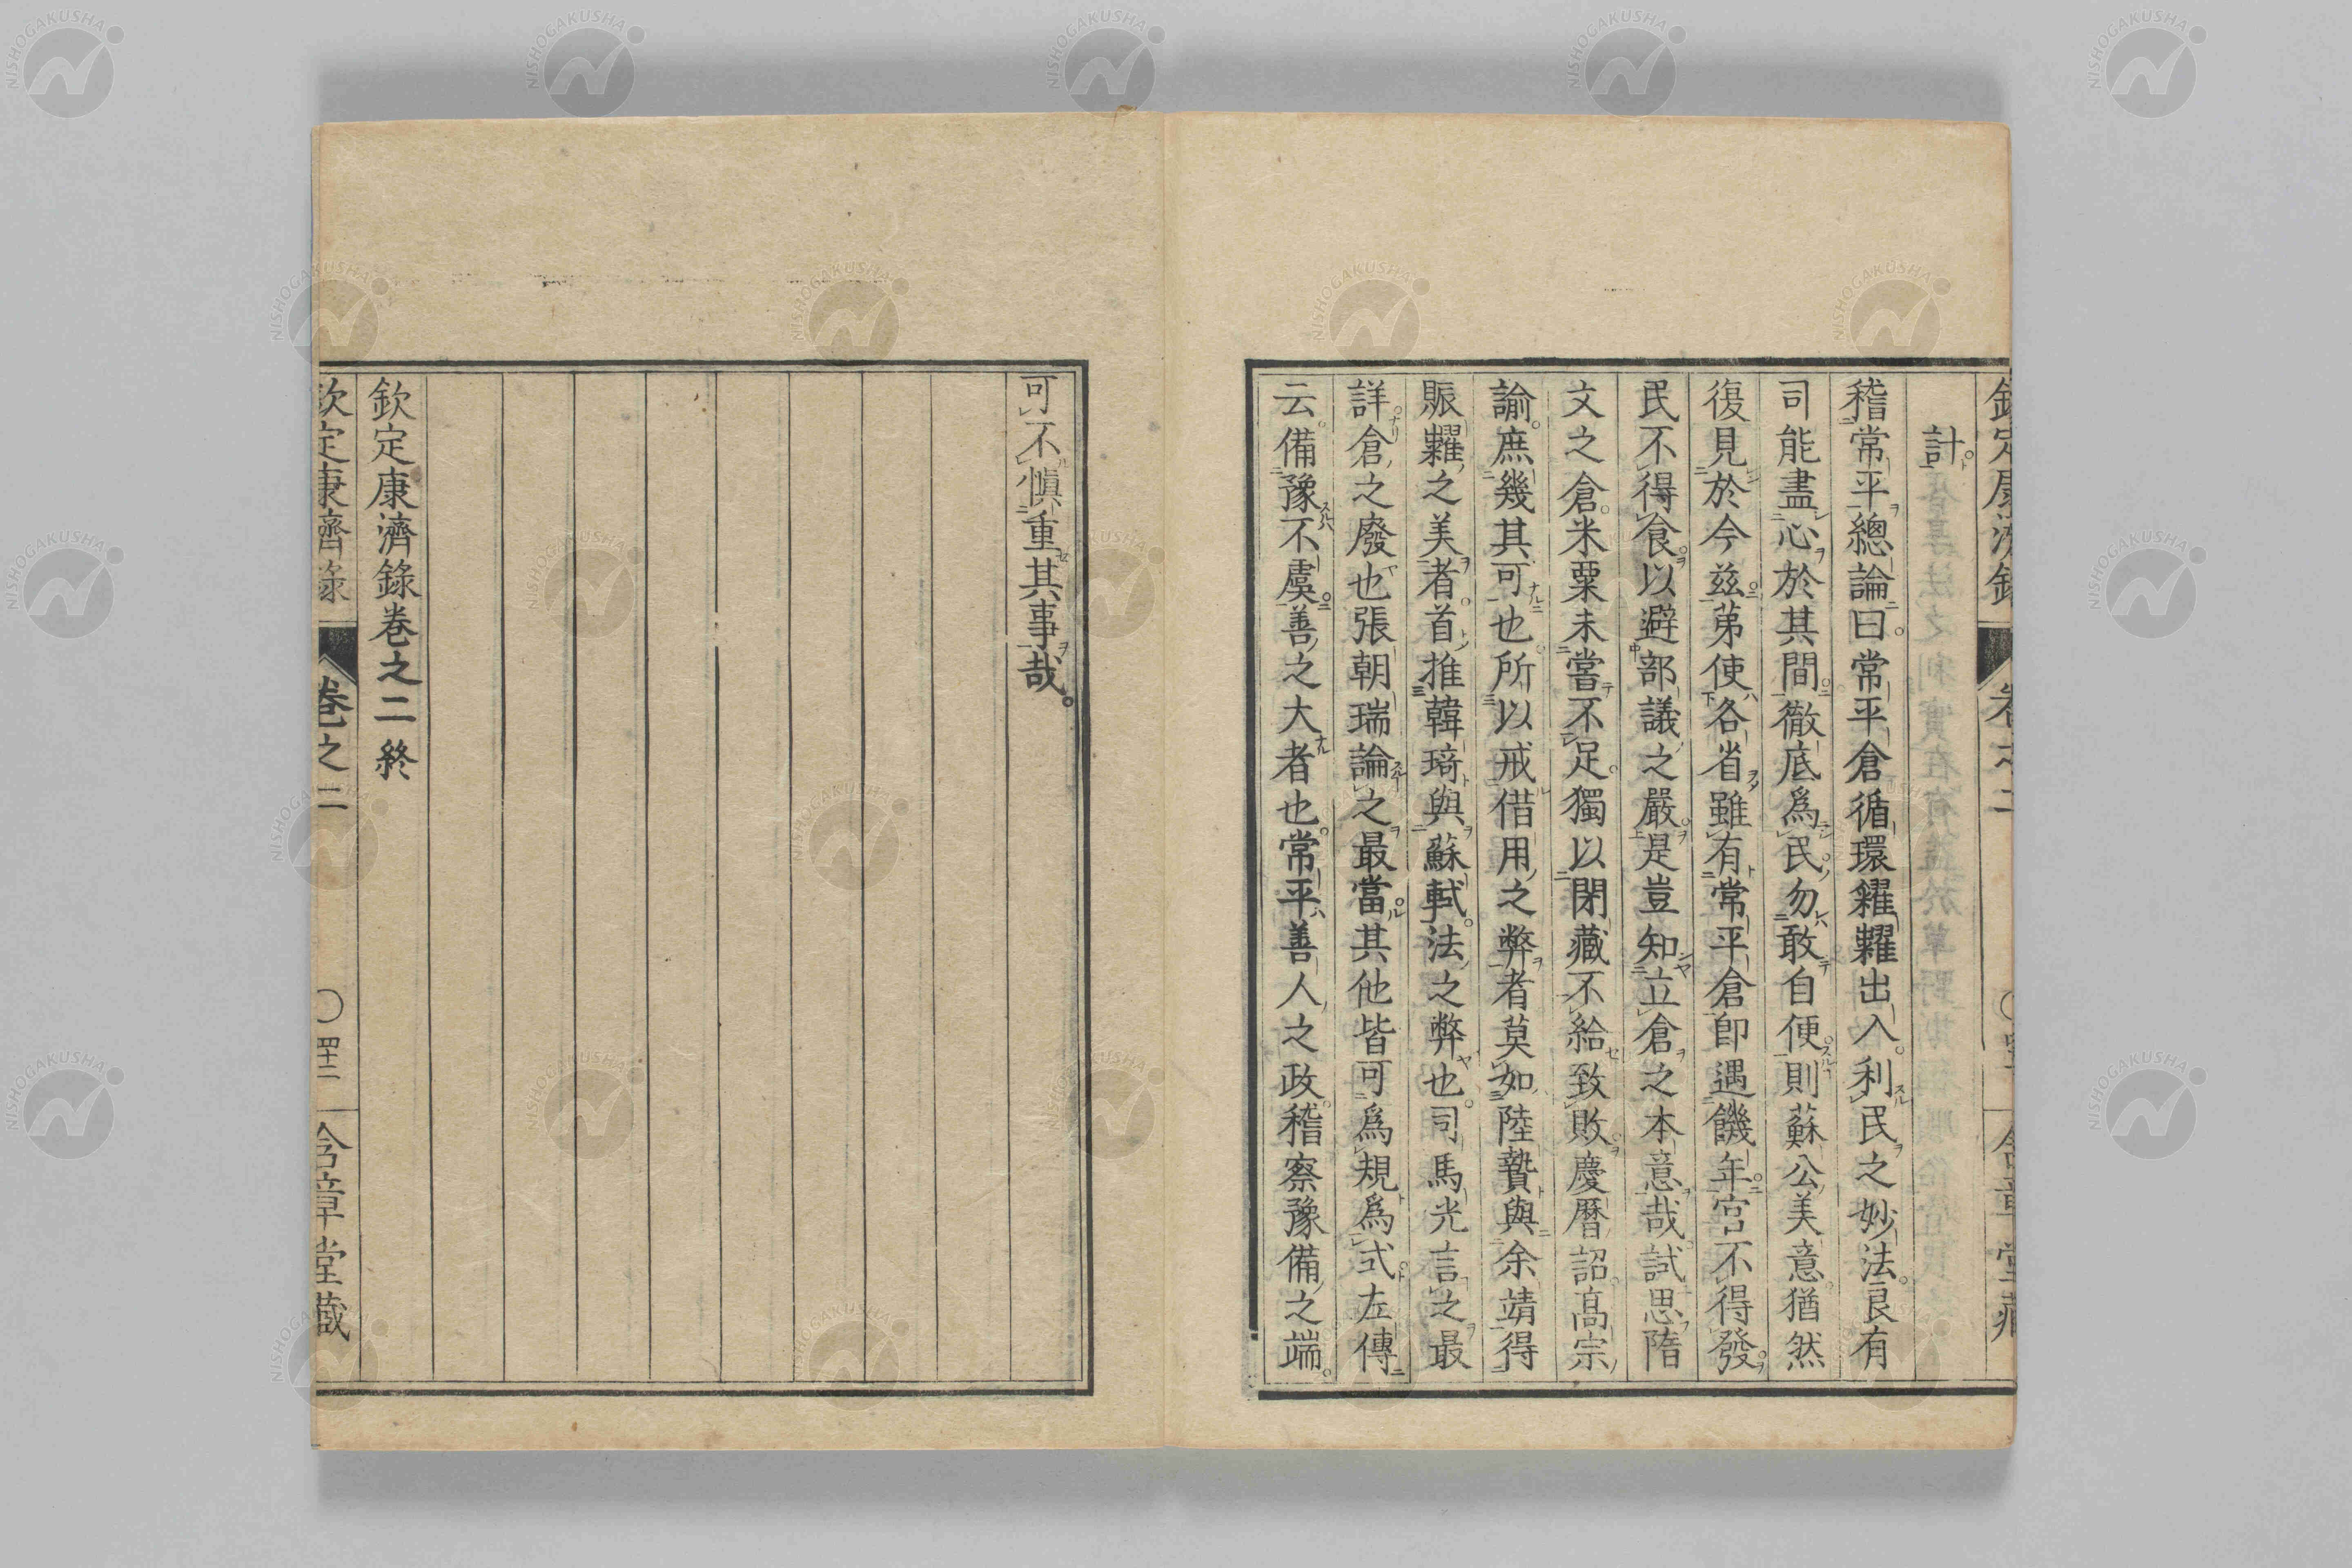 欽定康濟錄 卷之二 含章堂藏
計
稽常平總論曰常平倉循環糴糶出入利民之妙法良有
司能盡心於其間徹底爲民勿敢自便則蘇公美意猶然
復見於今玆苐使各省雖有常平倉卽遇饑年官不得發
民不得食以避部議之嚴是豈知立倉之本意哉試思隋
文之倉米粟未嘗不足獨以閉藏不給致敗慶曆詔高宗
諭庶幾其可也所以戒借用之弊者莫如陸贄與余靖得
賑糶之美者首推韓琦與蘇軾法之弊也司馬光言之最
詳倉之廢也張朝瑞論之最當其他皆可爲規爲式左傳
云備豫不虞善之大者也常平善人之政稽察豫備之端
可不愼重其事哉
欽定康濟錄卷之二終
欽定康濟錄 卷之二 〇 四十二 含章堂藏
NISHOGAKUSHA